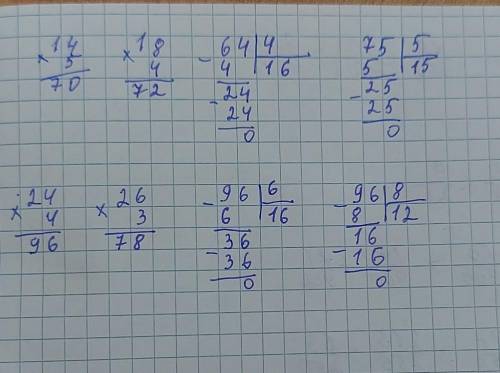 14 × 5 = 70
18 × 4 = 72
- 64 | 4
4 | 16
- 24
24
0
75 | 5
5 | 15
- 25
25
0
24 × 4 = 96
26 × 3 = 78
- 96 | 6
6 | 16
- 36
36
0
- 96 | 8
8 | 12
- 16
16
0